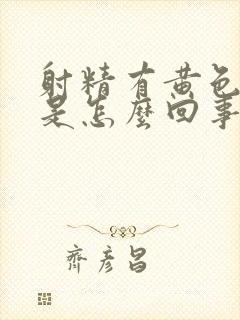 射精有黄色
是怎麼回事
齊彦昌